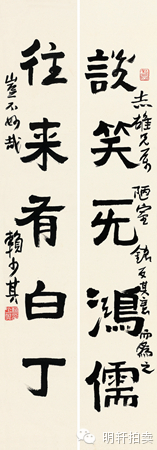 談笑旡鴻儒
志雄兄属 陋室銘反其意而為之
往来有白丁
豈不妙哉 賴少其
明轩拍卖